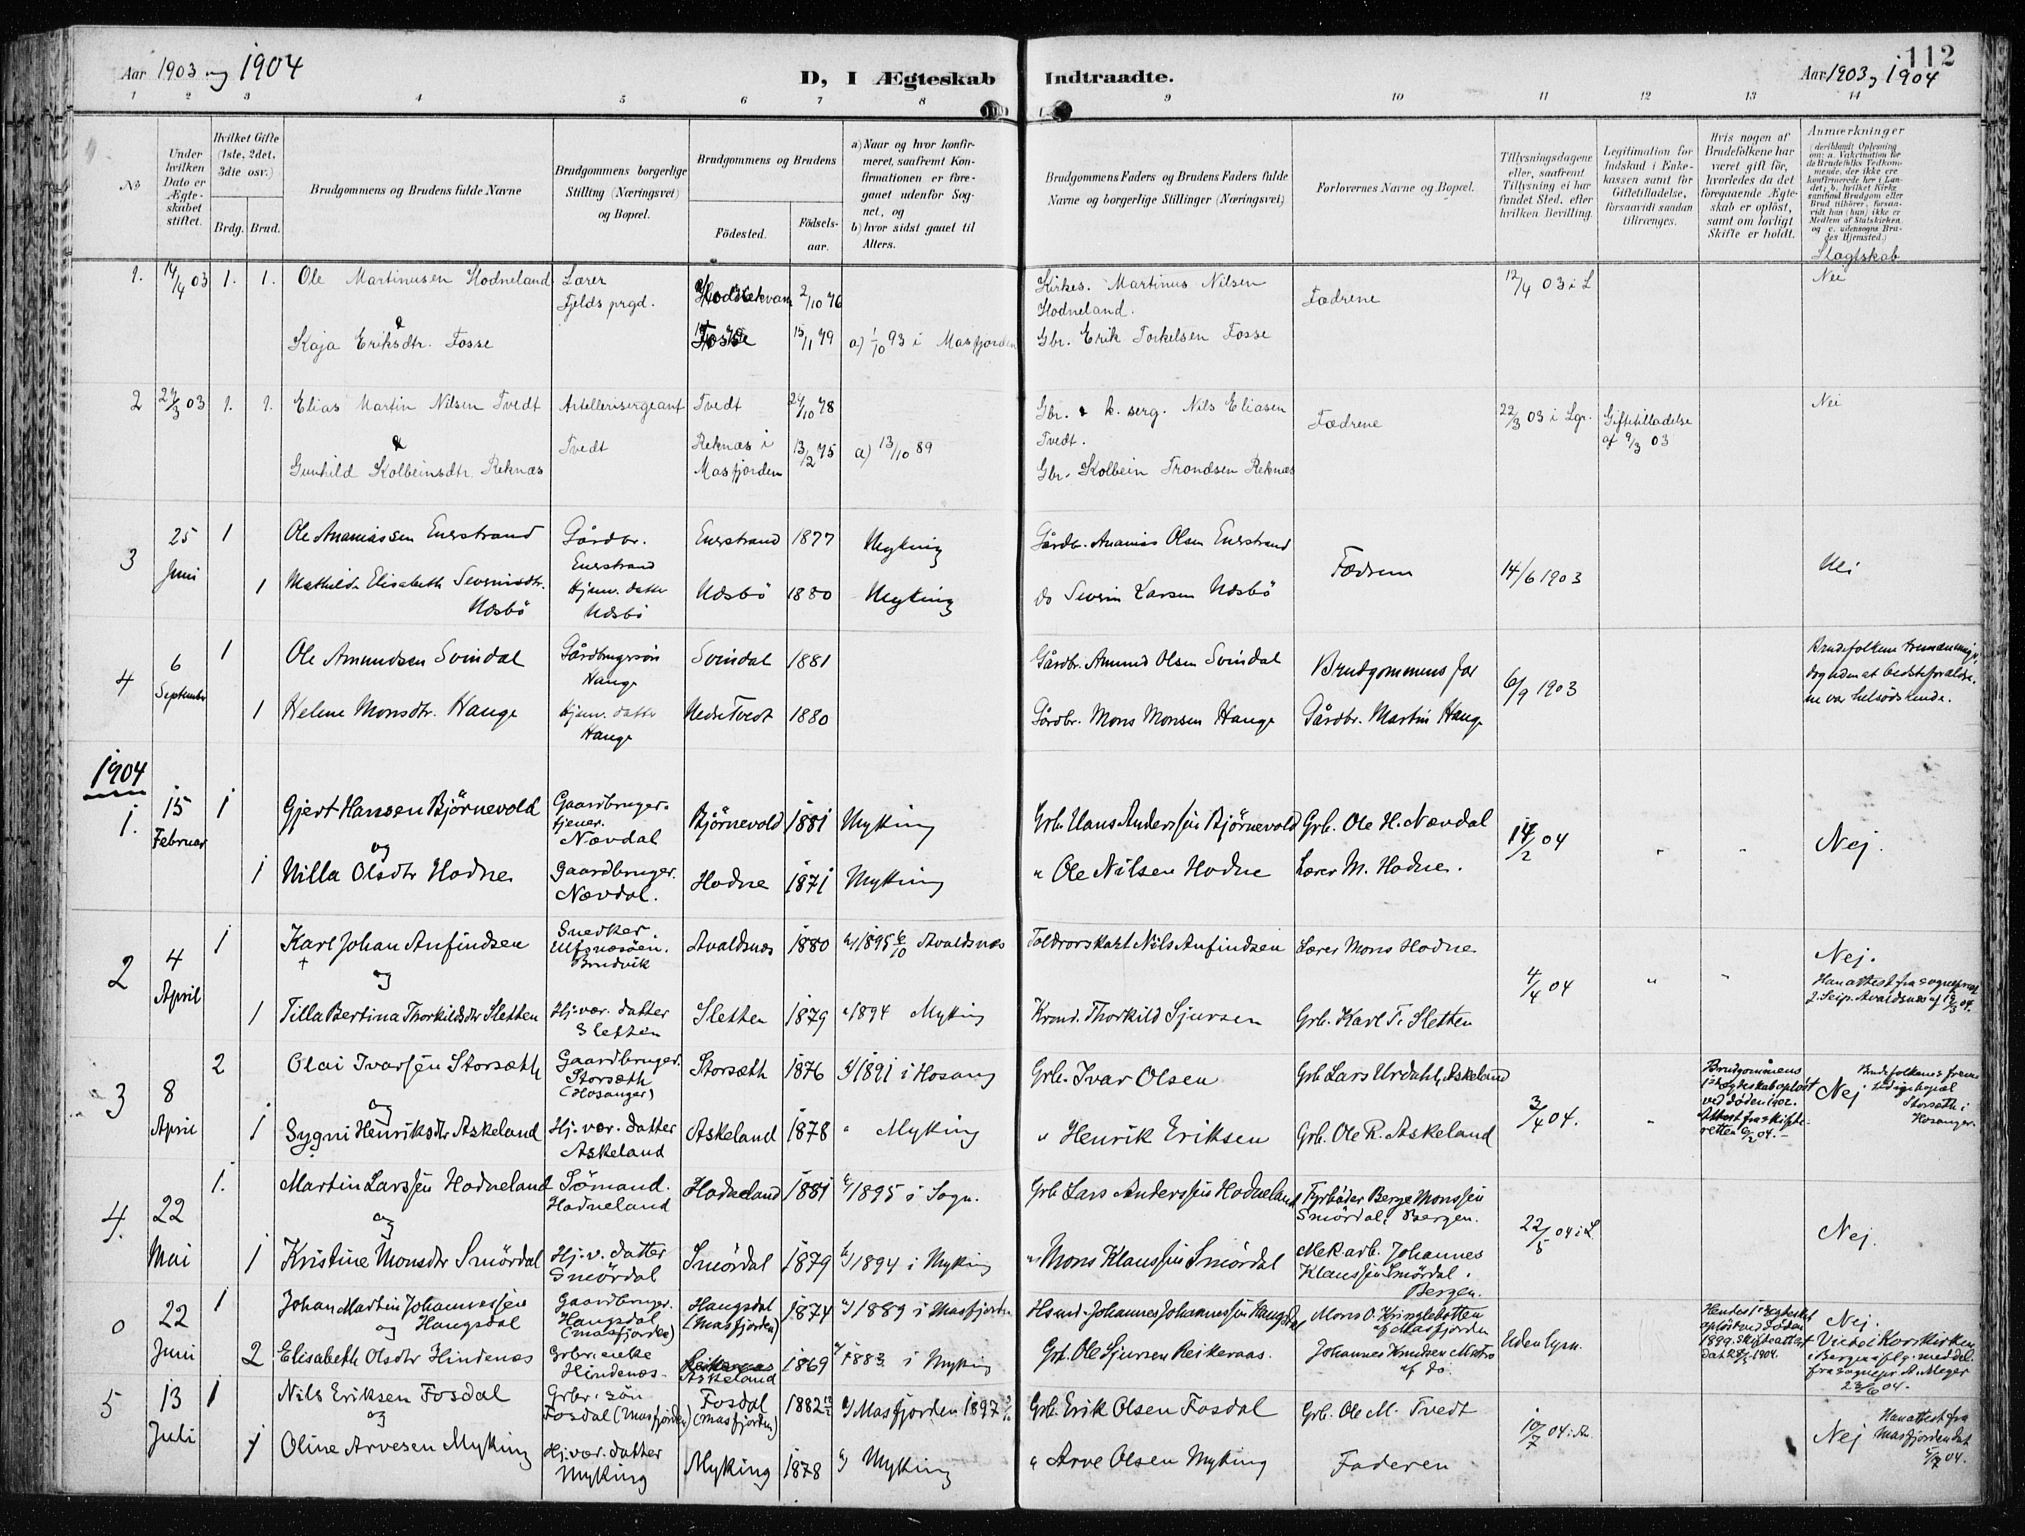 Aar 1903 og 1904
D, I Ægteskab Indtraadte.
Aar 1903 og 1904
112
1 2 3 4 5 6 7 8 9 10 11 12 13 14
No
Under hvilken Dato er Ægteskabet stiftet.
Hvilket Gifte (1ste, 2det, 3die osv.)
Brdg. Brud.
Brudgommens og Brudens fulde Navne
Brudgommens borgerlige Stilling (Næringsvei) og Bopæl.
Brudgommens og Brudens
Födested.
Födsels-aar.
a) Naar og hvor konfirmeret, saafremt Konfirmationen er foregaaet udenfor Sognet, og
b) hvor sidst gaaet til Alters.
Brudgommens Faders og Brudens Faders fulde Navne og borgerlige Stillinger (Næringsvei)
Forlovernes Navne og Bopæl.
Tillysningsdagene eller, saafremt Tillysning ei har fundet Sted, efter hvilken Bevilling.
Legitimation for Indskud i Enkekassen samt for Giftetilladelse, forsaavidt saadan tiltrænges.
Hvis nogen af Brudefolkene har været gift för, hvorledes da det foregaaende Ægteskab er oplöst, samt om lovligt Skifte er holdt.
Anmærkninger
Slægtskab
1. 14/4 03 1. 1. Ole Martinusen Hodneland
Lærer
Fjelds prgd.
2/10 76
Kirkes. Martinus Nilsen
Hodneland.
Fædrene
12/4 03 i L
Nei
&
Kaja Eriksdtr. Fosse
15/11 79
a) 1/10 93 i Masfjorden
Gbr. Erik Torkelsen Fosse
2 29/3 03 1. 1. Elias Martin Nilsen Tvedt
Artellerisergeant
Tvedt
Tvedt
24/10 78
Gbr. & k. serg. Nils Eliasen
Tvedt.
Fædrene
22/3 03 i Lgr.
Giftetilladelse
af 9/3 03
Nei
&
Gunhild Kolbeinsdtr. Reknæs
Reknæs i
Masfjorden
13/2 75
a) 13/10 89
Gbr. Kolbein Trondsen Reknæs
3 25 Juni 1 Ole Ananiassen Enerstrand
Gårdbr.
Enerstrand
Enerstrand 1877 Myking
Gårdbr. Ananias Olsen Enerstrand
Fædrene
14/6 1903
Nei
1 Mathilde Elisabeth Severinsdtr.
Udsbö
Hjemv. datter
Udsbö
Udsbö 1880 Myking
do Severin Larsen Udsbö
4 6 September 1 Ole Amundsen Svindal
Gårdbrugersön
Hauge
Svindal 1881
Gårdbr. Amund Olsen Svindal
Brudgommens far
6/9 1903
1 Helene Monsdtr. Hauge
Hjemv. datter
Hauge
Nedre Tvedt 1880
Gårdbr. Mons Monsen Hauge
Gårdbr. Martin Hauge
1904
1. 15 Februar 1 Gjert Hansen Björnevold
Gaardbruger-
tjener.
Nævdal
Björnevold 1881 Myking
Grb. Hans Anderssen Björnevold
Grb. Ole H. Nævdal
14/2 04 " "
Nej.
og
1 Nilla Olsdtr Hodne
Gaardbruger.
Nævdal.
Hodne 1871 Myking
" Ole Nilsen Hodne
Lærer M. Hodne.
2 4 April 1 Karl Johan Anfindsen
Snedker
Ulfsnæsöen.
Bruvik
Avaldsnæs 1880 a/1895 6/10 Avaldsnæs
Toldrorskarl Nils Anfindsen
Lærer Mons Hodne
4/4 04 " "
Nej.
Han attest fra sognepræst
J. Seip. Avaldsnæs af 19/3 04.
og
1 Tilla Bertina Thorkildsdtr Sletten
Hj.vær. datter
Sletten
Sletten 1879 "1894 Myking
Kraml. Thorkild Sjursen
Grb. Karl T. Sletten
3 8 April 2 Olai Ivarsen Storsæth
Gaardbruger.
Storsæth
(Hosanger)
Storsæth 1876 a/1891 i Hosang
Grb. Ivar Olsen
Grb Lars Urdahl, Askeland
3/4 04. "
Brudgommens
1 ægteskab oplöst
ved döden 1902.
Attest fra skifteretten 6/2 04.
Nej
Brudefolkenes fremtidige bopæl
Storsæth i
Hosanger.
og
1 Sygni Henriksdtr Askeland
Hj. vær. datter
Askeland
Askeland 1878 " Myking
" Henrik Eriksen
Grb. Ole R. Askeland
4. 22 Mai 1. Martin Larssen Hodneland
Sömand.
Hodneland
Hodneland 1881 a/1895 i Sogn.
Grb Lars Anderssen Hodneland
Fyrböder Berge Monssen
Smördal, Bergen.
22/5 04 i L.
Nej.
og
1 Kristine Monsdtr Smördal
Hj. v. datter
Smördal
Smördal 1879 a/1894 i Myking
" Mons Klaussen Smördal
Mek arb. Johannes
Klaussen Smördal.
Bergen.
0 22 Juni 1 Johan Martin Johannessen
Haugsdal
Gaardbruger.
Haugsdal
(Masfjorden)
Haugsdal
(Masfjorden)
1874 a/1889 i Masfjorden
Hsmd. Johannes Johannessen Haugsdal
Mons O. Kringlebotten
af Masfjorden
Uden lysn.
Hendes 1 ægteskab
oplöst ved döden
1899. Skifteattest
dat. 28/5 1904.
Nej.
Viet i Korskirken
i Bergen iflg. meddel.
fra sognepr. A. Meyer
23/6 04.
og
2 Elisabeth Olsdtr Hindenæs
Grbr. enke
Hindenæs.
Askeland
1869 a/1883 i Myking
Grb. Ole Sjursen Reikeraas.
Johannes Knudsen Matre
af do.
5 13 Juli 1 Nils Eriksen Fosdal
Grbr. sön
Fosdal (Masfjorden)
Fosdal
(Masfjorden)
1882 a/ Masfjorden 1897
Grb. Erik Olsen Fosdal
Grb. Ole M. Tvedt
10/7 04 i A.
Nej
Han attest fra
Masfjorden dat
5/7 04.
og
1 Oline Arvesen Myking
Hj. vær. datter
Myking
Myking 1878 a/ Myking
" Arve Olsen Myking
Faderen